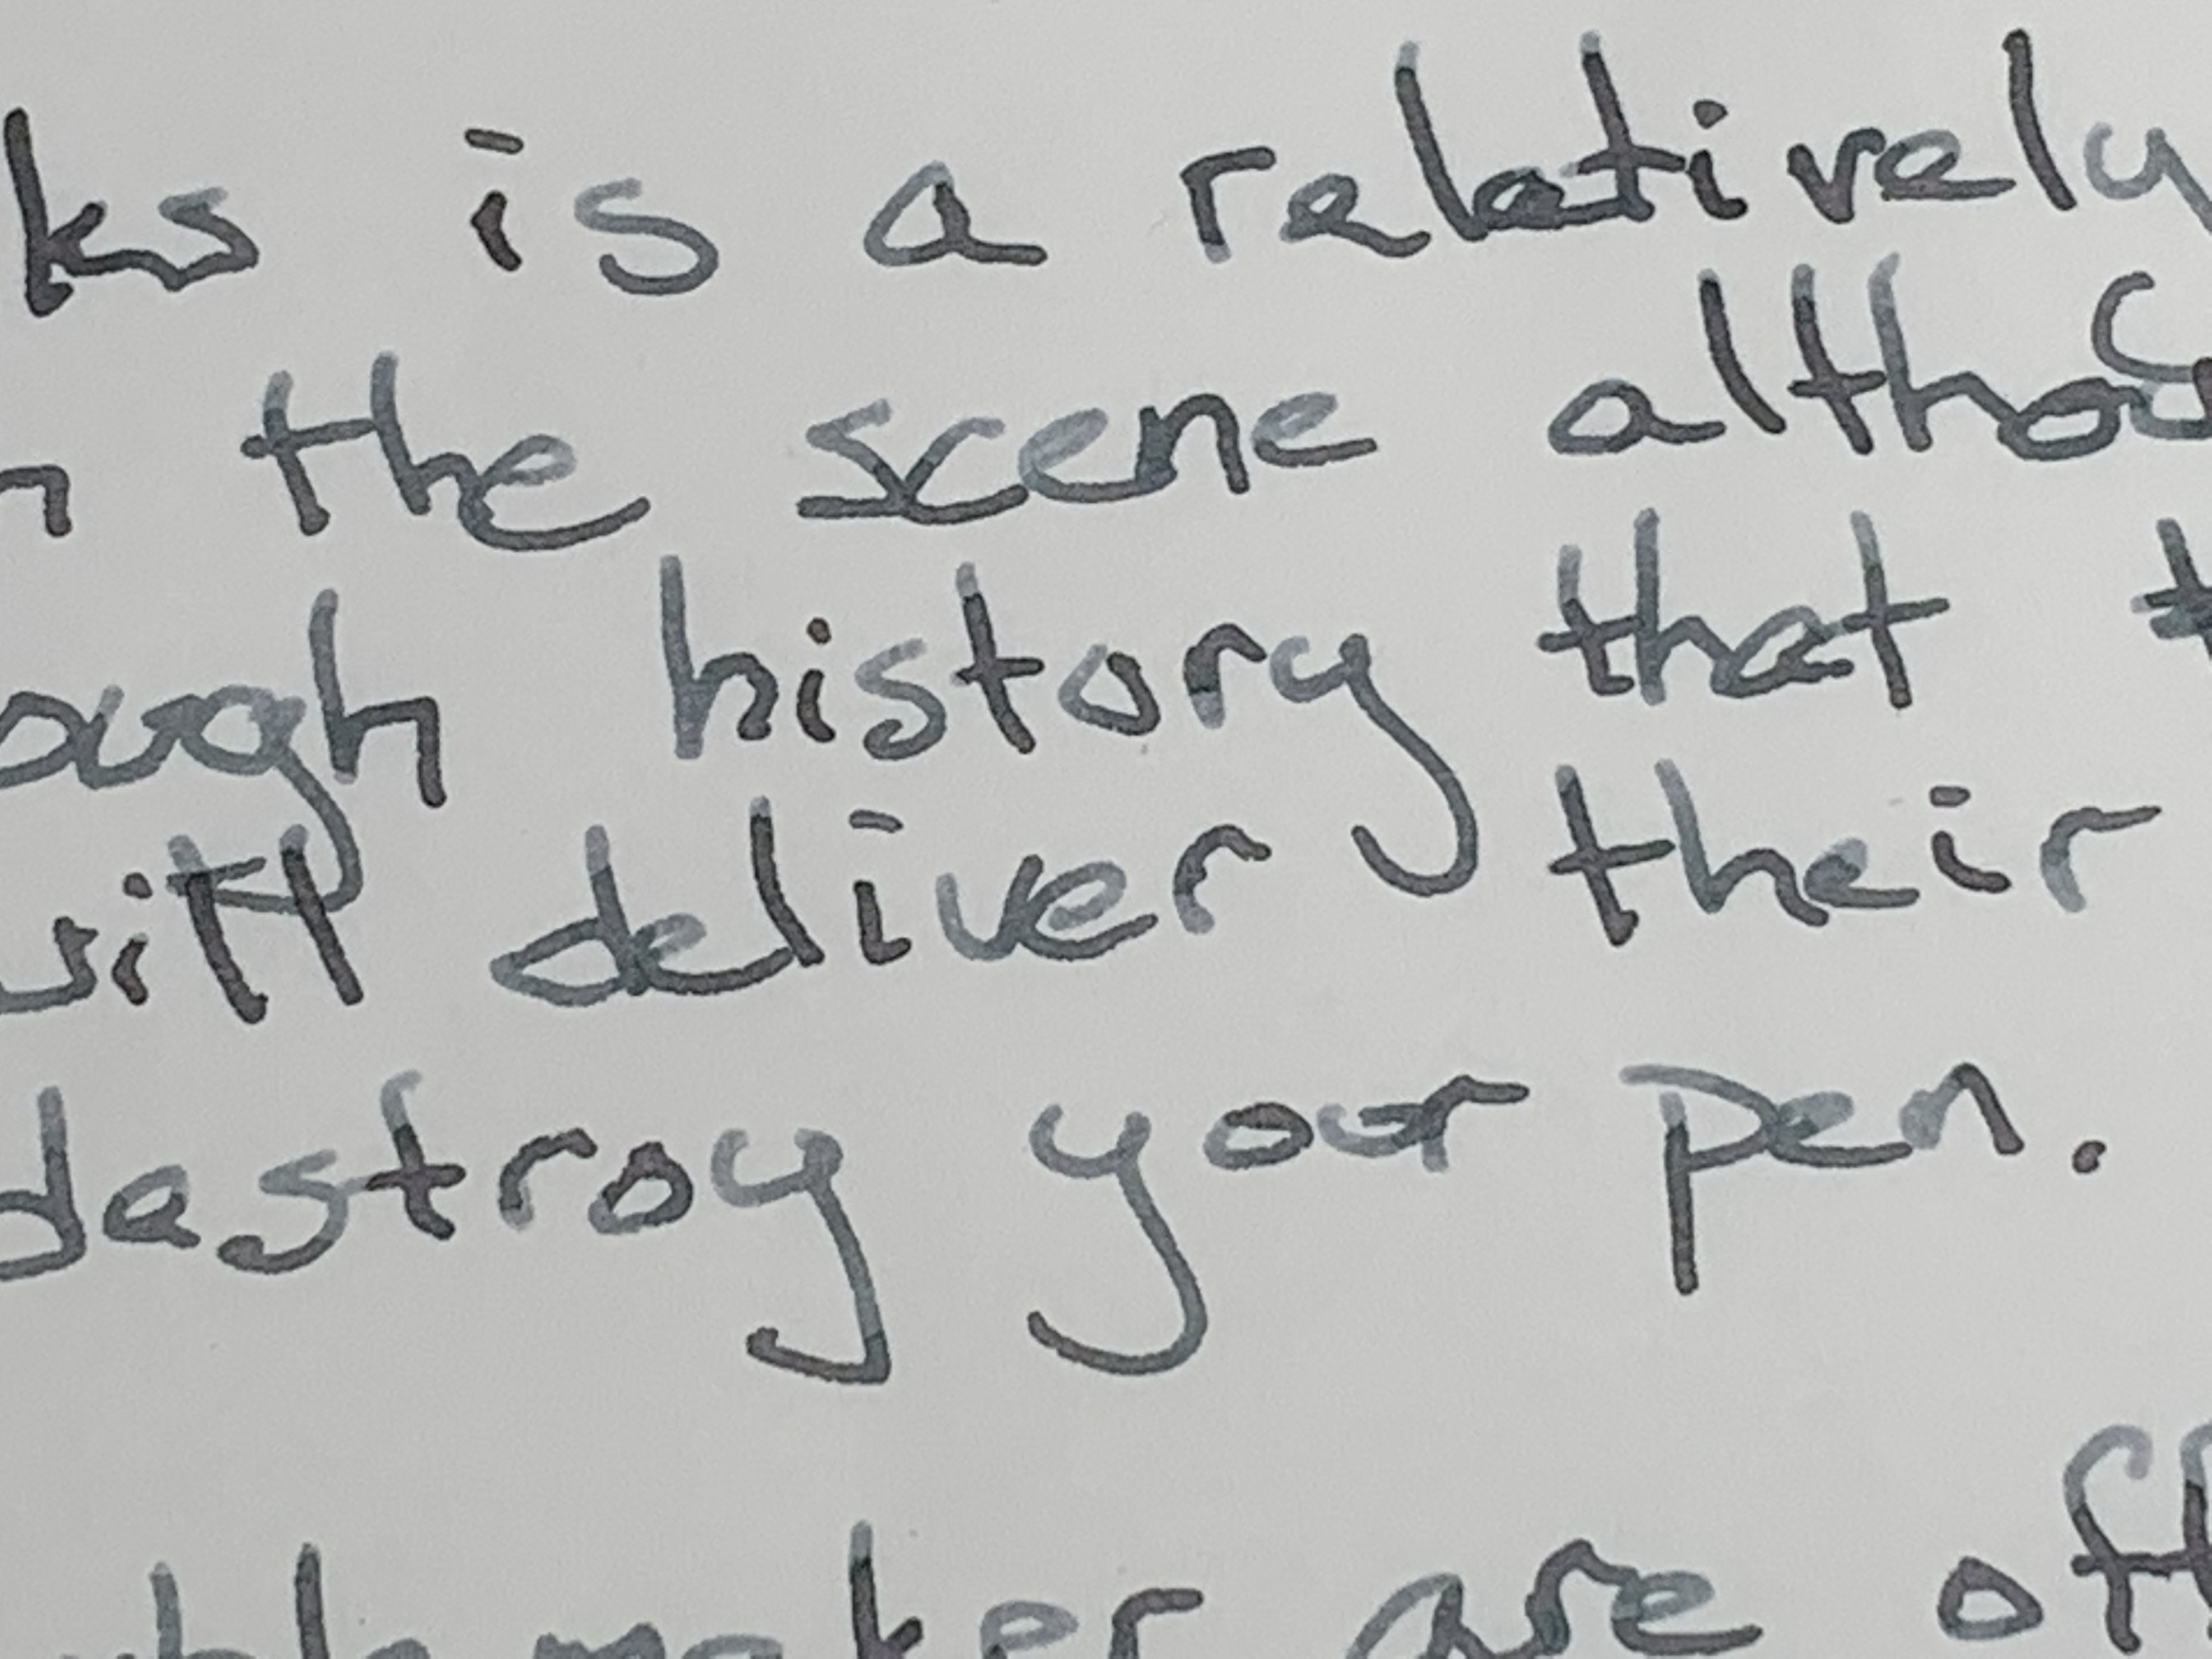 ks is a relatively
n the scene althou
ough history that t
will deliver their
destroy your pen.
maker are off